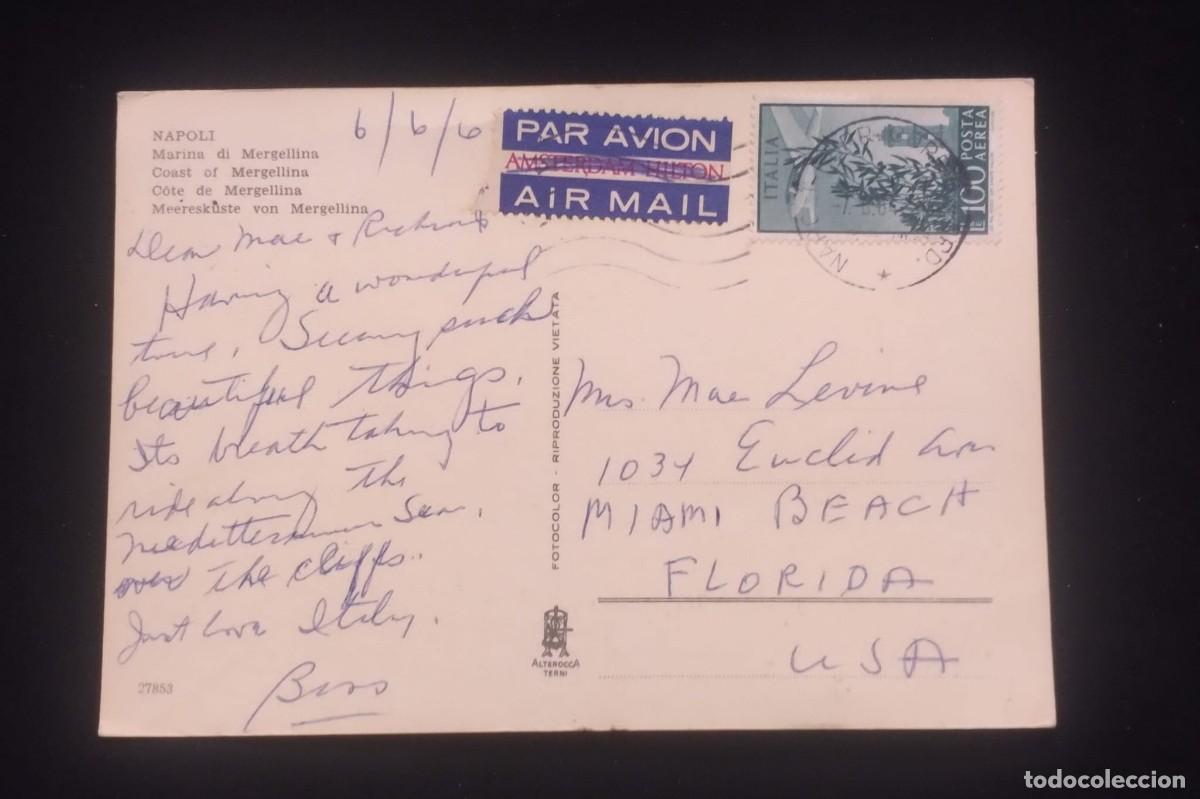 NAPOLI
Marina di Mergellina
Coast of Mergellina
Côte de Mergellina
Meeresküste von Mergellina
6/6/6
PAR AVION
AMSTERDAM HILTON
AiR MAIL
ITALIA
POSTA AEREA
L 100
Dear Mae & Richard
Having a wonderful
time. Seeing such
beautiful things.
Its breath taking to
ride along the
Meditterranean Sea.
over the cliffs.
Just love Italy.
27853
FOTOCOLOR - RIPRODUZIONE VIETATA
ALTEROCCA
TERNI
Mrs. Mae Levine
1034 Euclid Ave
MIAMI BEACH
FLORIDA
USA
todocoleccion